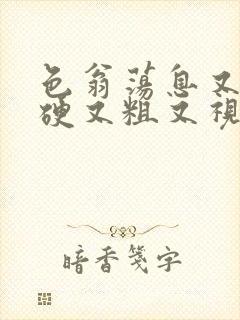 色翁荡息又
硬又粗又视
暗香笺字